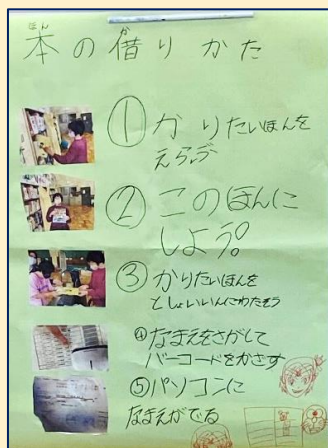 ほん
本の借りかた
①かりたいほんを
えらぶ
②このほんに
しよう。
③かりたいほんを
としょいいんにわたそう
④なまえをさがして
バーコードをかざす
⑤パソコンに
なまえがでる